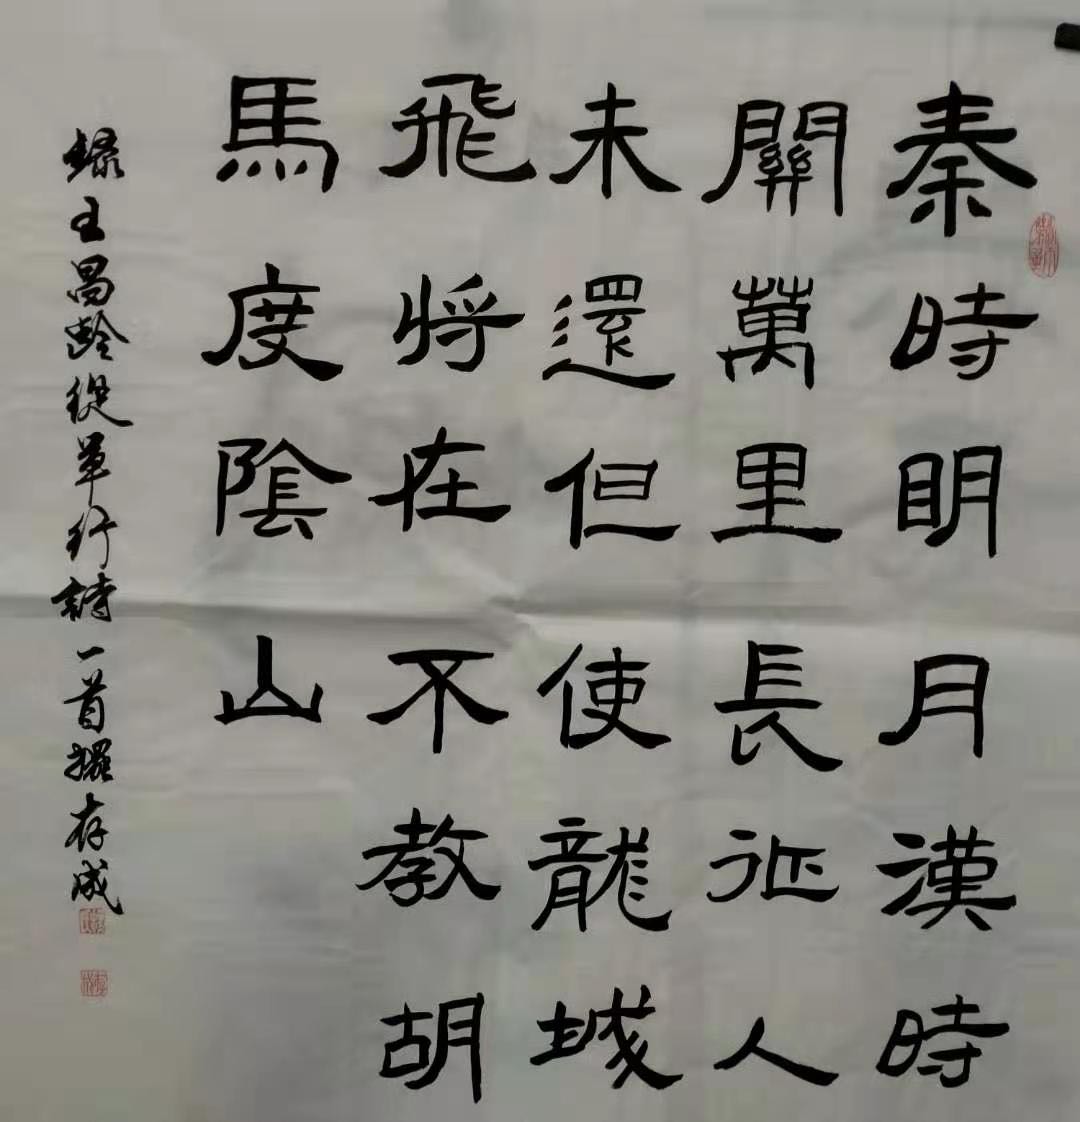 秦時明月漢時
關萬里長征人
未還但使龍城
飛将在不教胡
馬度陰山
録王昌齡從軍行詩一首耀存成